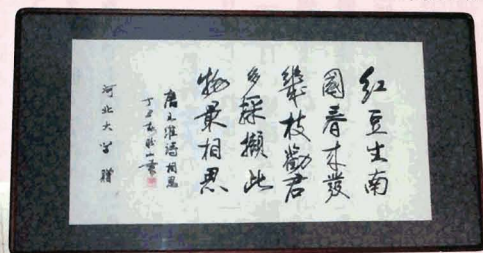 红豆生南
國春来發
幾枝勸君
多採擷此
物最相思
唐王维诗相思
丁丑
書
河北大学赠